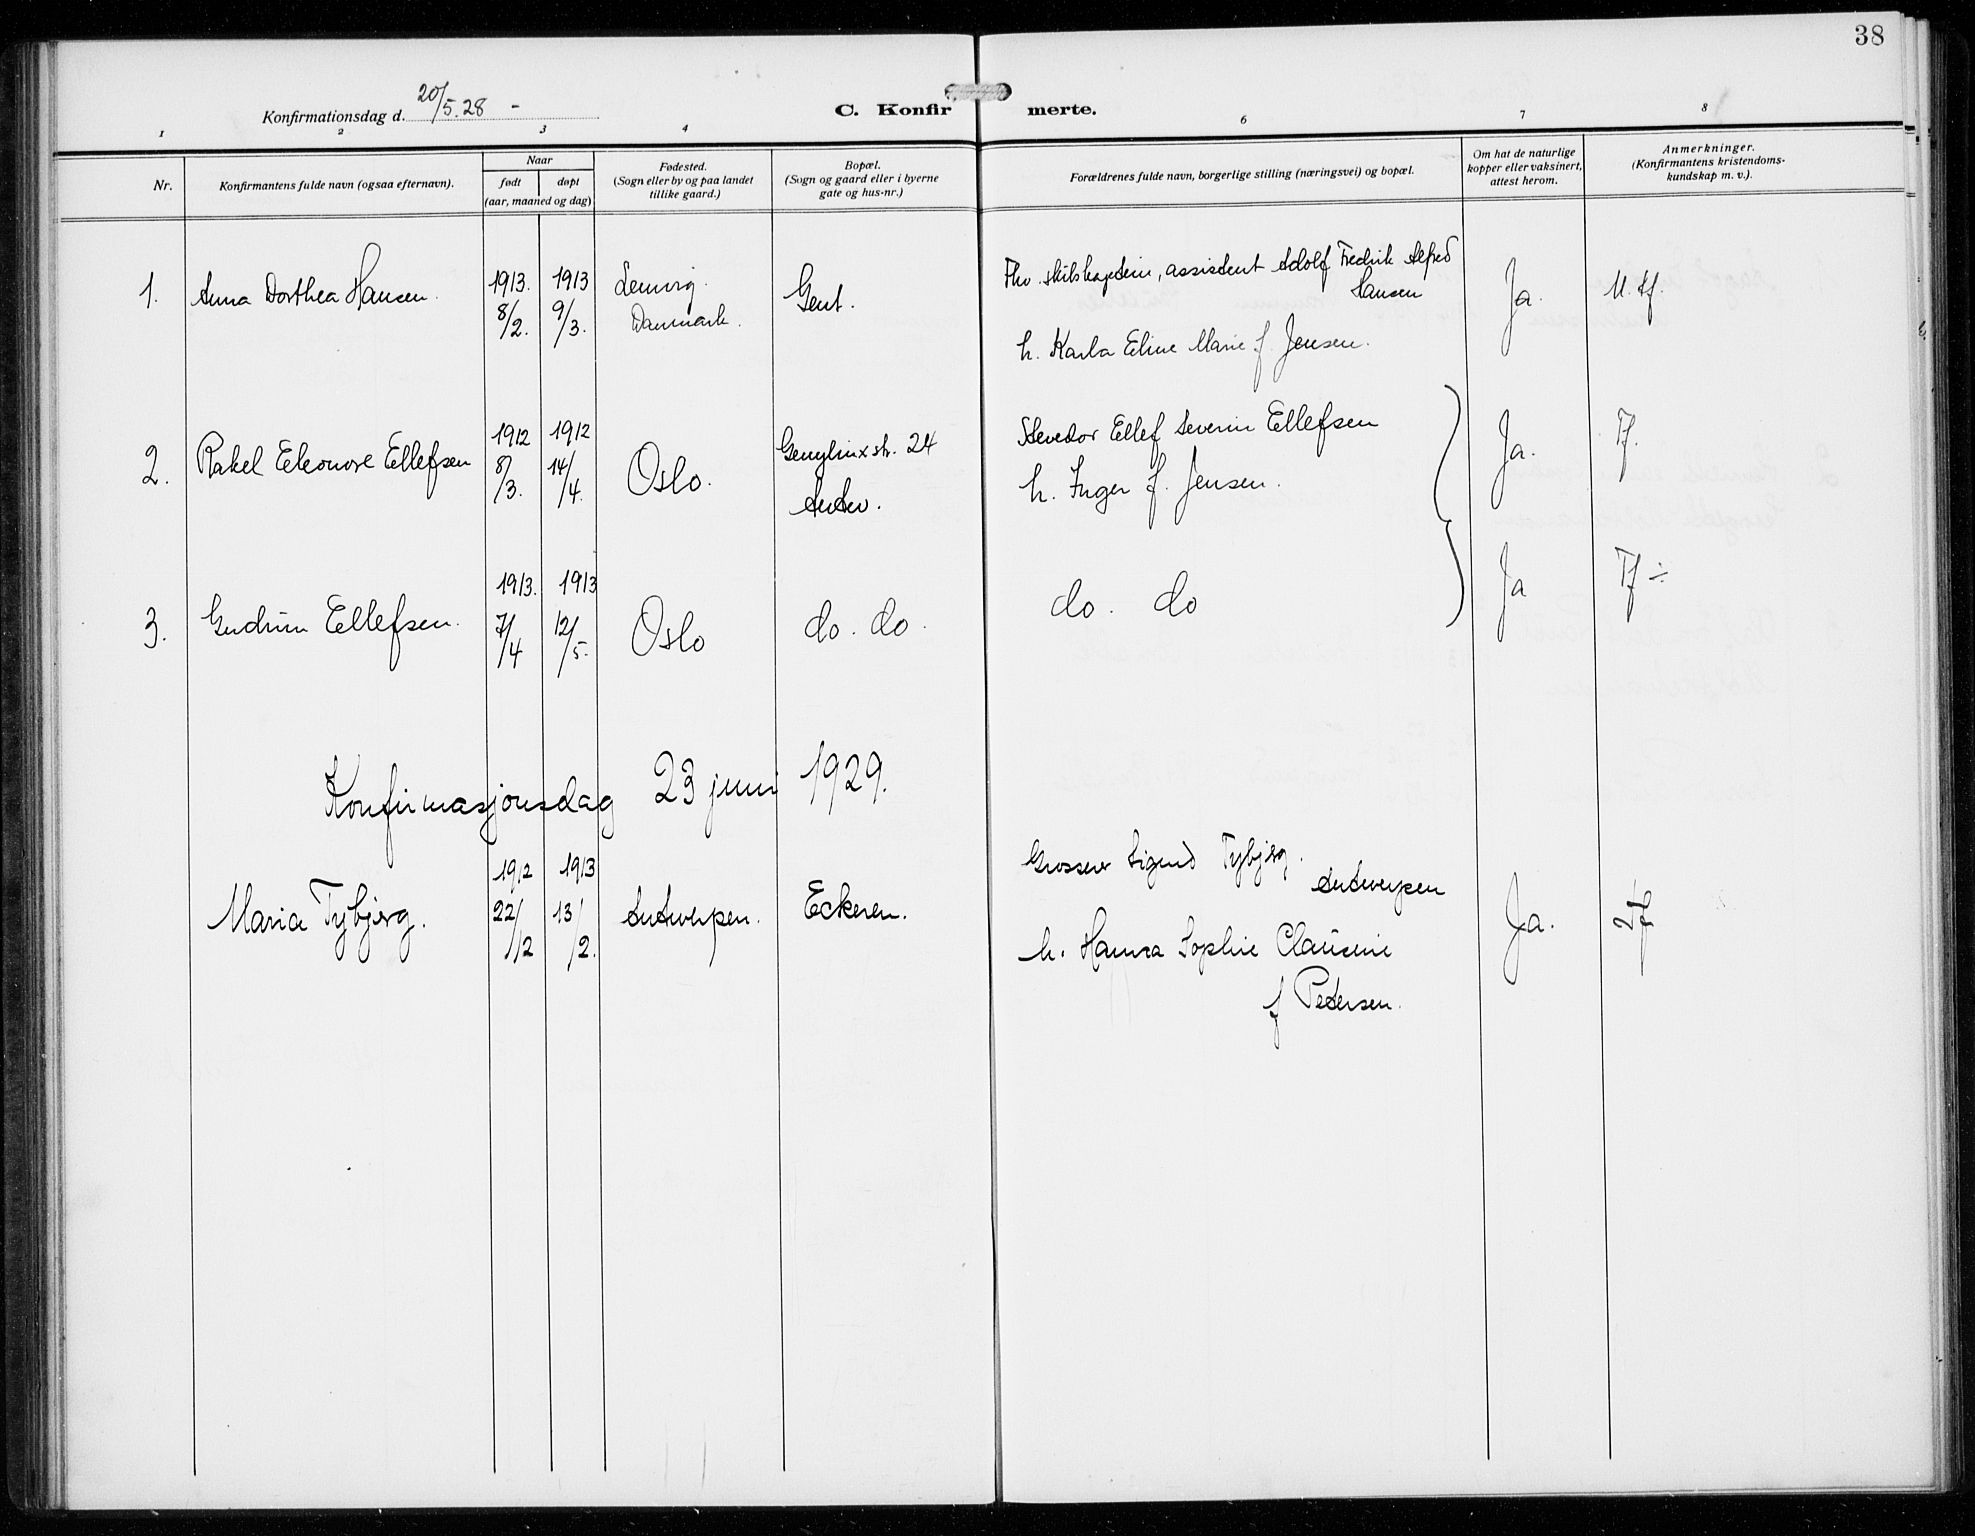 38
Konfirmationsdag d. 20/5.28 -
C. Konfirmerte.
1 2 3 4 6 7 8
Nr.
Konfirmantens fulde navn (ogsaa efternavn).
Naar
født døpt
(aar, maaned og dag)
Fødested.
(Sogn eller by og paa landet
tillike gaard.)
Bopæl.
(Sogn og gaard eller i byerne
gate og hus-nr.)
Forældrenes fulde navn, borgerlige stilling (næringsvei) og bopæl.
Om hat de naturlige
kopper eller vaksinert,
attest herom.
Anmerkninger.
(Konfirmantens kristendoms-
kundskap m. v.).
1.
Anna Dorthea Hansen.
1913. 8/2.
1913 9/3.
Lemvig.
Danmark.
Gent.
Fhv. skibskaptein, assistent Adolf Fredrik Alfred
Hansen
h. Karla Eline Marie f. Jensen.
Ja.
M. tf.
2.
Rakel Eleonore Ellefsen
1912 8/3.
1912 14/4.
Oslo.
str. 24
Antw.
Stevedor Ellef Severin Ellefsen
h. Inger f. Jensen.
Ja.
Tf.
3.
Gudrun Ellefsen.
1913. 7/4
1913 12/5.
Oslo
do. do.
do. do
Ja
Tf ÷
Konfirmasjonsdag 23 juni 1929.
Maria Tybjerg.
1912 22/12
1913 13/2.
Antwerpen.
Eckeren.
Grosserer Sigurd Tybjerg.
Antwerpen
h. Hanna Sophie Clausine
f Petersen.
Ja.